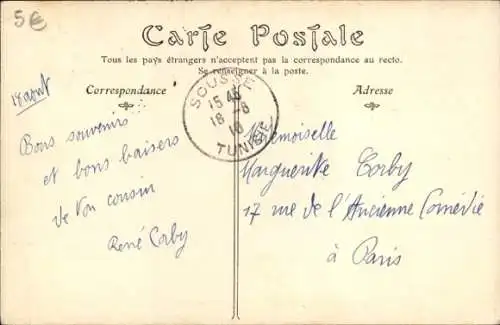 5€
Carte Postale
Tous les pays étrangers n'acceptent pas la correspondance au recto.
Se renseigner à la poste.
Correspondance
Adresse
18 août
SOUSSE
15 45
18 - 8
10
TUNISIE
Bons souvenirs
et bons baisers
de ton cousin
René Corby
Mademoiselle
Marguerite Corby
17 rue de l'Ancienne Comédie
à Paris